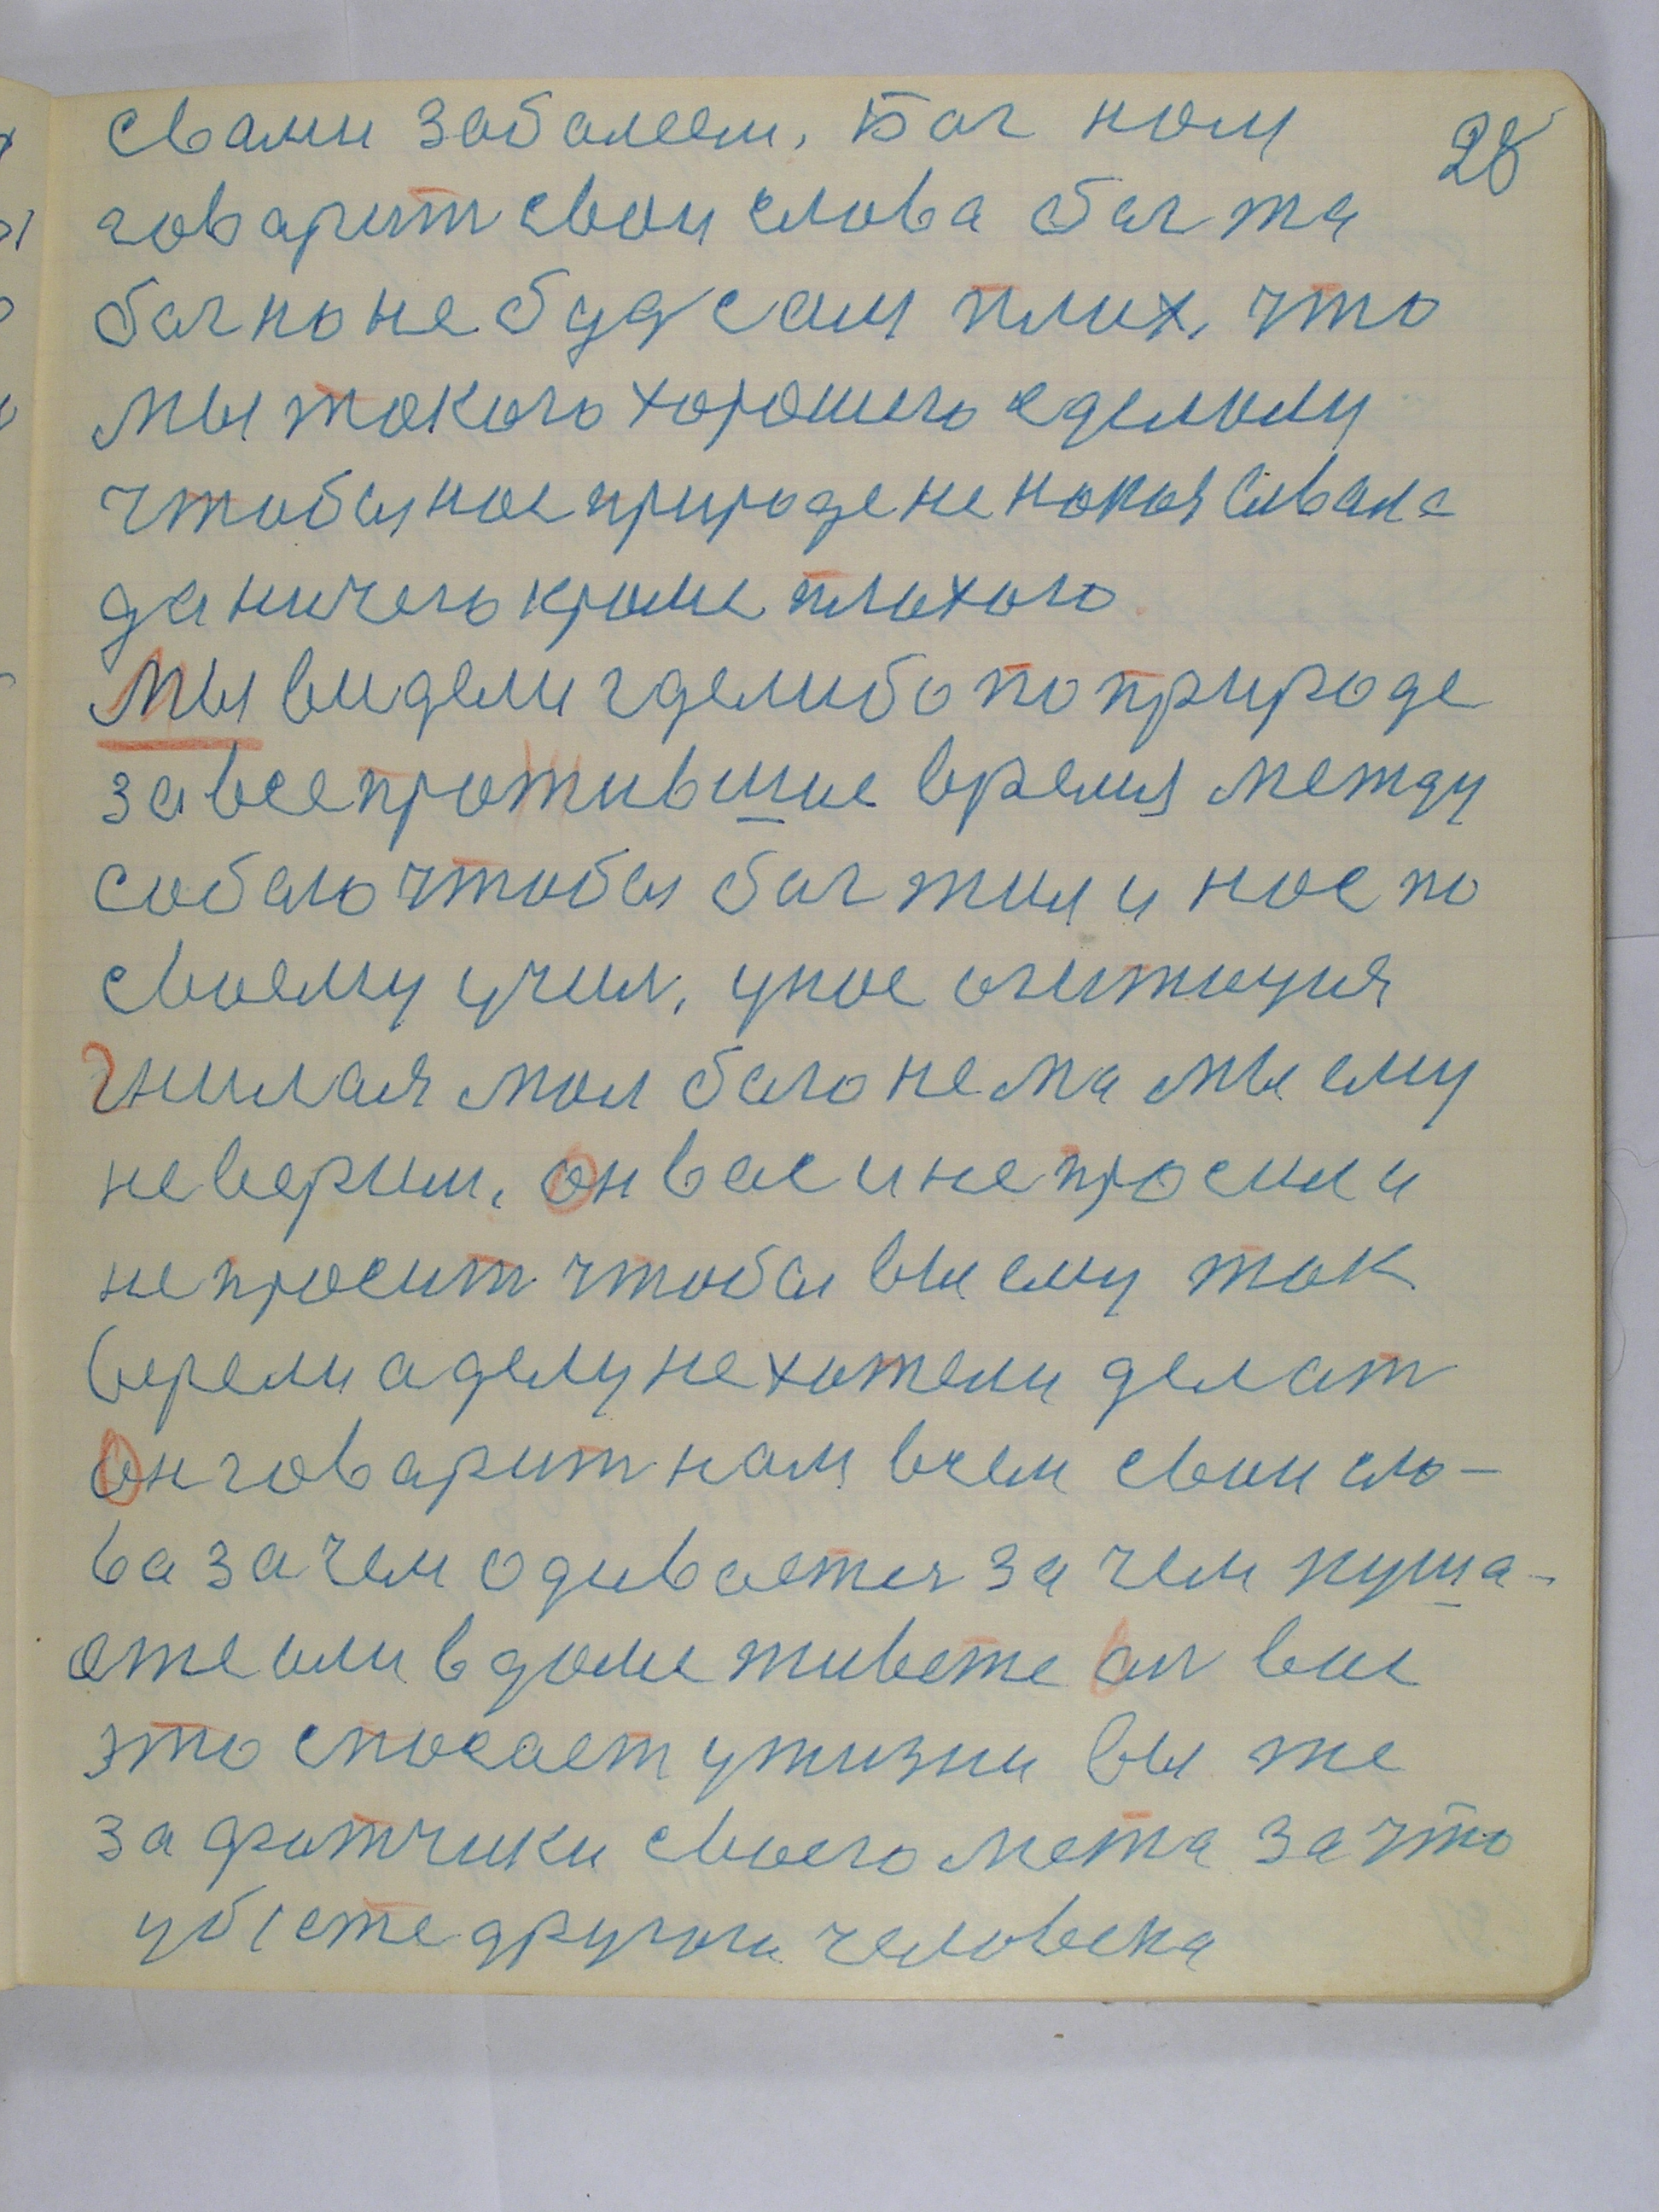 свами заболеем, Бог ном
28
говарит свои слова бог та
бог но не буд сам плох, что
мы токого хорошего сделали
чтобы нос природе не нокозывала
да ничего кроме плохого
Мы видели где либо по природе
за все прожившие время между
собою чтобы бог жил и нос по
своему учил, у нос агитация
гнилая мол бога нема мы ему
не верим, он вас и не просил и
не просит чтобы вы ему так
верели а делу не хотели делат
Он говарит нам всем свои сло-
ва зачем одиваетя зачем куша-
ете или в доме живете ог вас
это спосает у жизни вы же
захватчики своего места за что
убiете другога человека